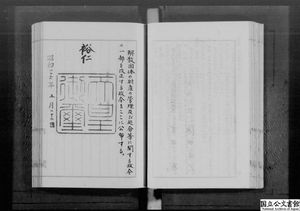 解散団体の財産の管理及び処分等に関する政令
の一部を改正する政令をここに公布する。
裕仁
天皇
御璽
国立公文書館
National Archives of Japan